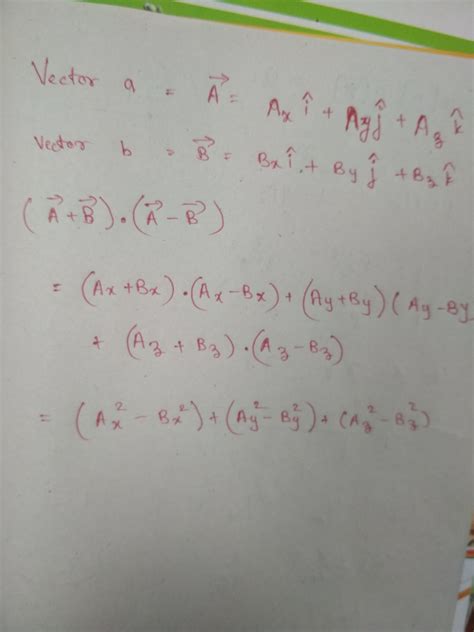 Vector a = A⃗ = Ax î + Ay ĵ + Az k̂
Vector b = B⃗ = Bx î + By ĵ + Bz k̂
(A⃗ + B⃗) • (A⃗ − B⃗)
= (Ax + Bx) • (Ax − Bx) + (Ay + By) (Ay − By
+ (Az + Bz) • (Az − Bz)
= (Ax² − Bx²) + (Ay² − By²) + (Az² − Bz²)